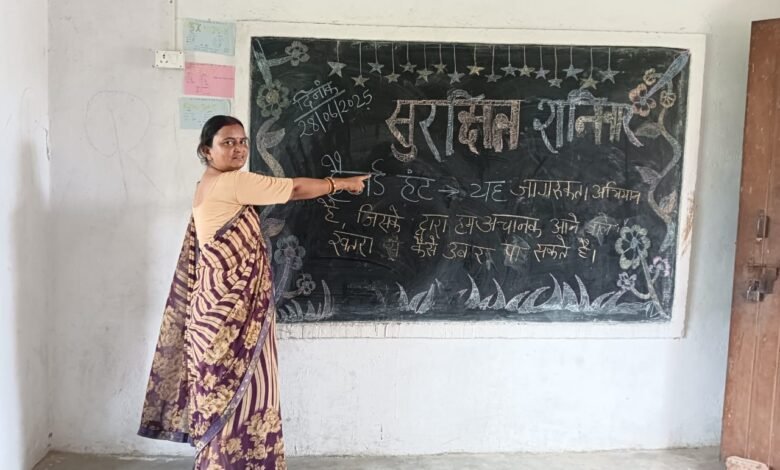 दिनांक
28/06/2025
सुरक्षित शनिवार
हंट → यह जागरूकता अभियान
है, जिसके द्वारा हम अचानक आने वाले
खतरा से कैसे उबारा पा सकते हैं।